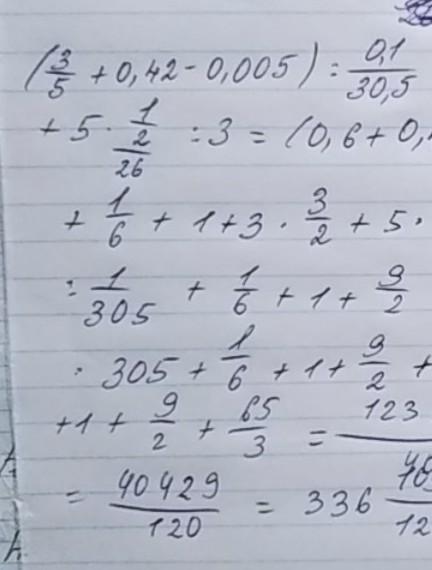 (3/5 + 0,42 - 0,005) : 0,1/30,5
+ 5 · 1/(2/26) : 3 = (0,6 + 0,
+ 1/6 + 1 + 3 · 3/2 + 5 ·
: 1/305 + 1/6 + 1 + 9/2
· 305 + 1/6 + 1 + 9/2 +
+1 + 9/2 + 65/3 = 123
= 40429/120 = 336